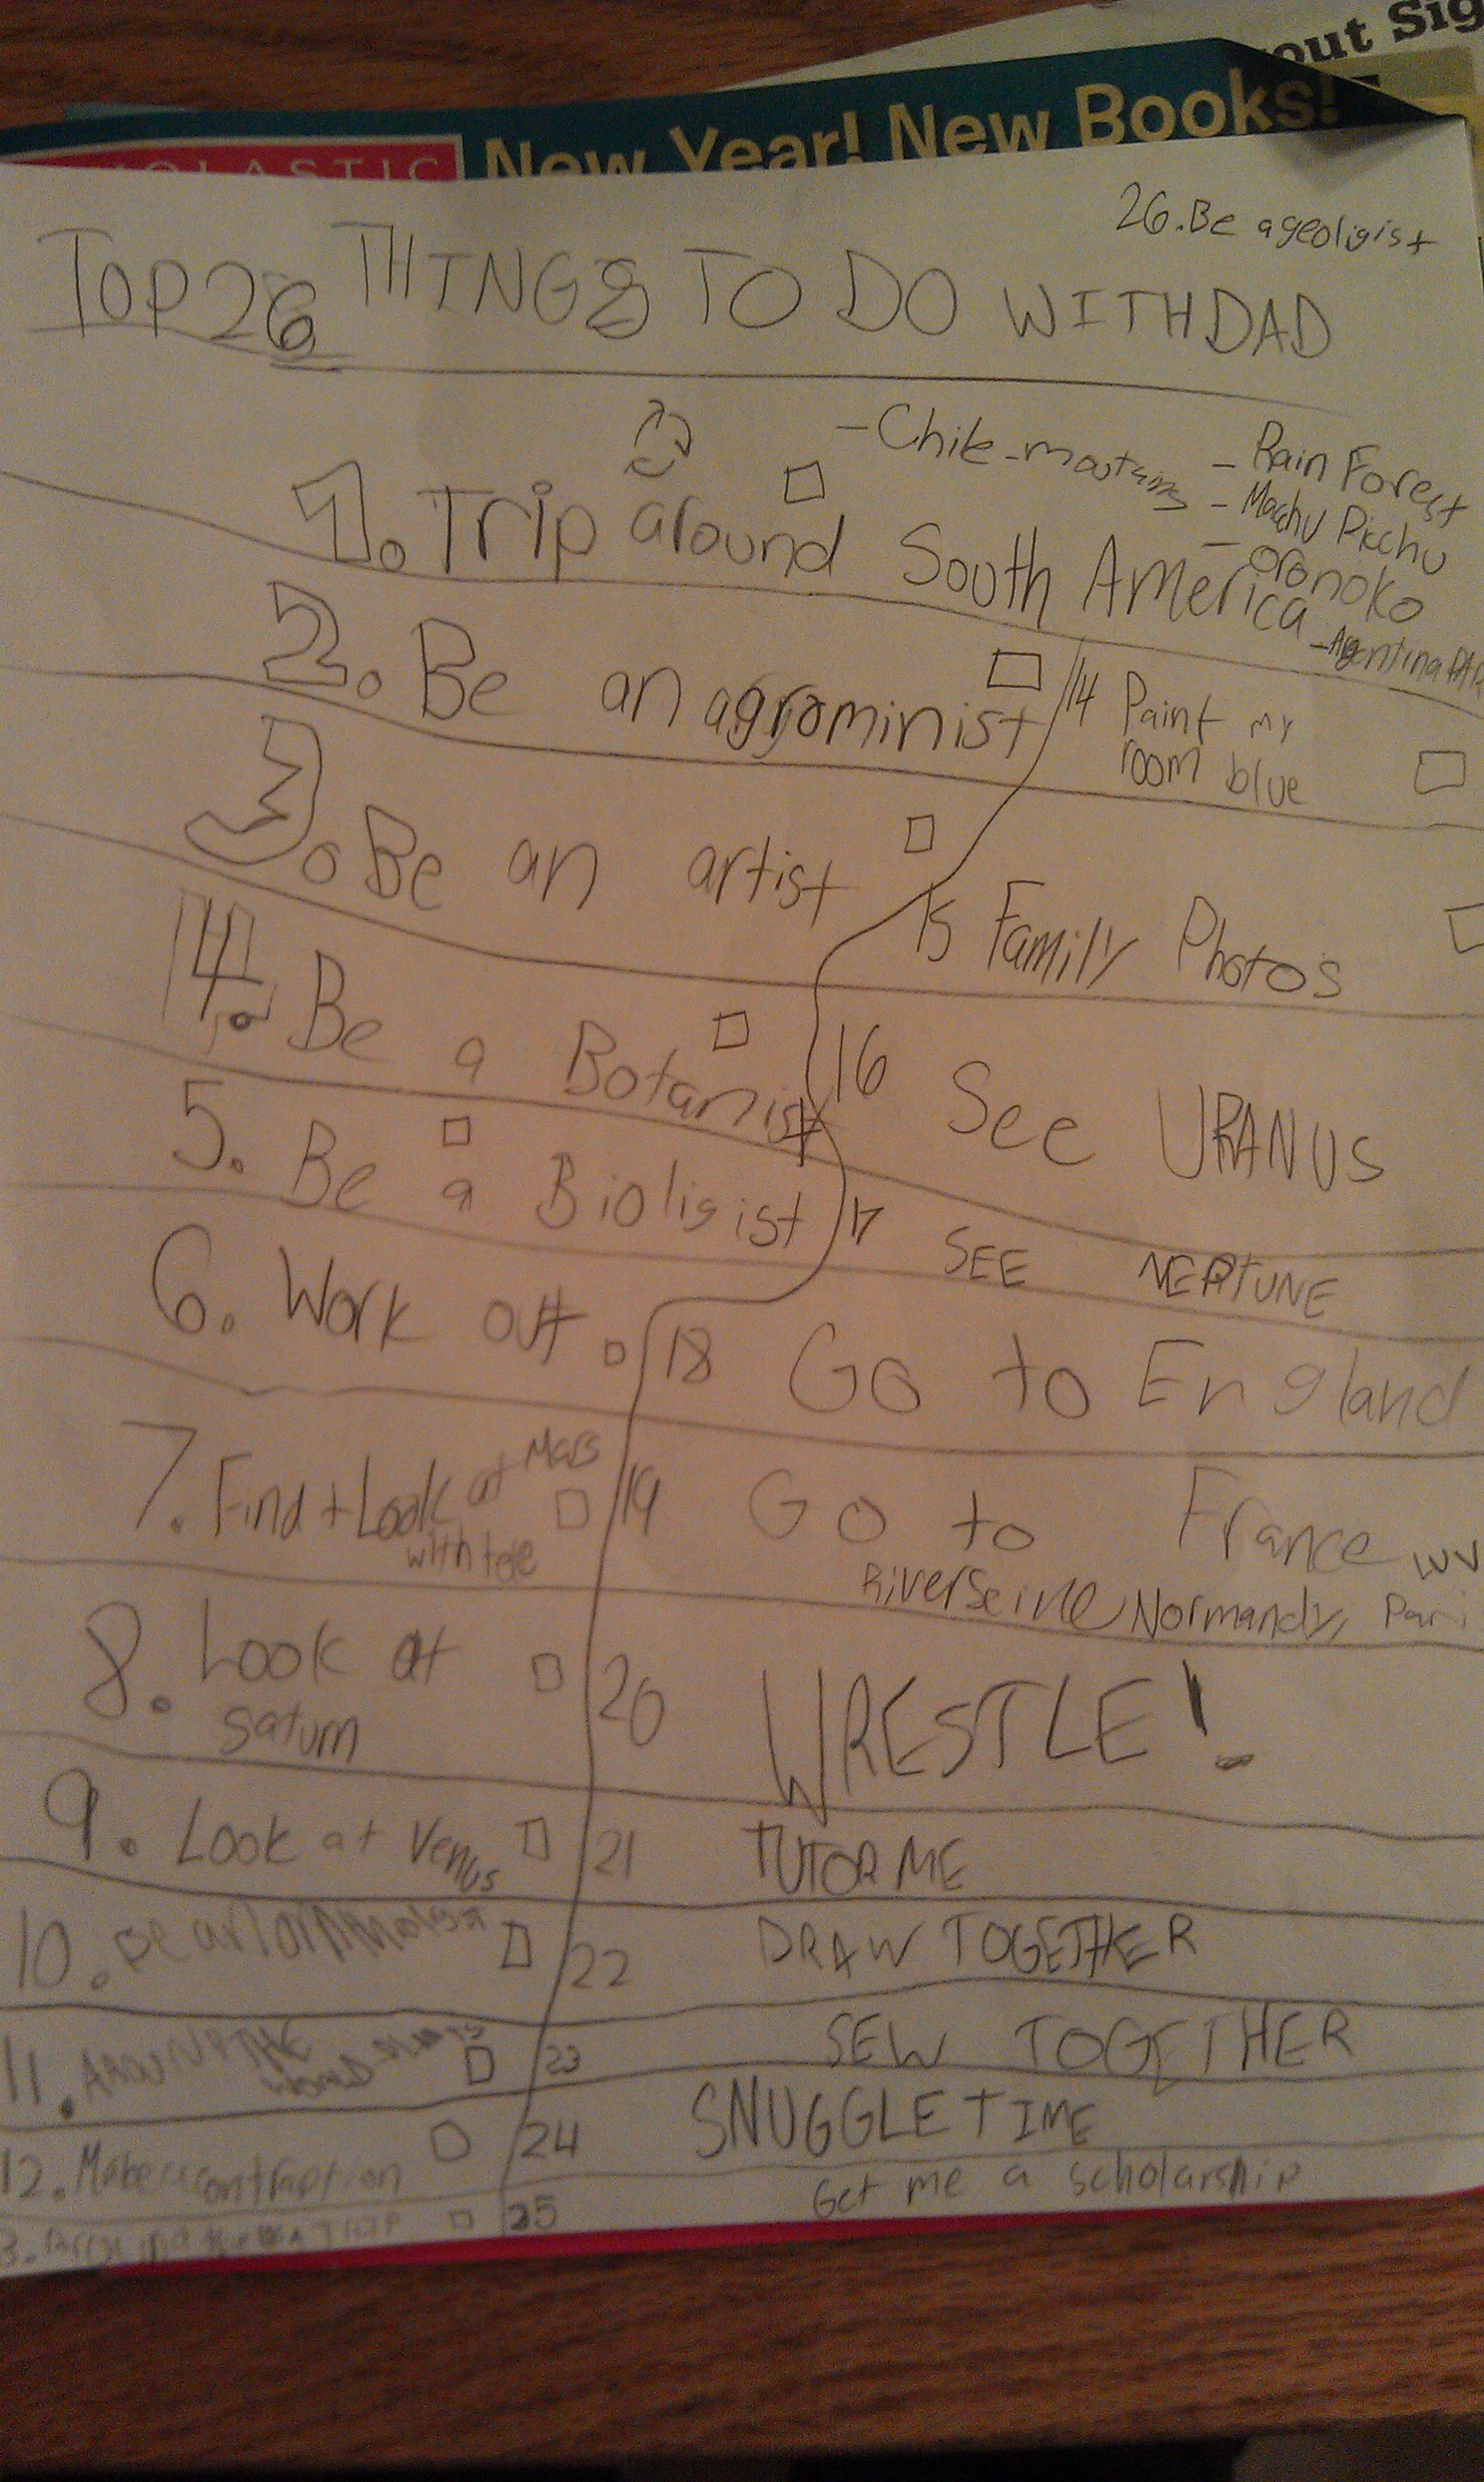 out Sig
SCHOLASTIC New Year! New Books!
26. Be a geoligist
TOP 26 THINGS TO DO WITH DAD
1. Trip around South America
- Chile - moutains
- Rain Forest
- Machu Picchu
- oronoko
- Argentina
2. Be an agrominist
3. Be an artist
4. Be a Botanist
5. Be a Bioligist
6. Work out
7. Find + Look at Mars
with tele
8. Look at
Saturn
9. Look at Venus
10. Be an
11. AROUND THE
12. Make a contraption
14 Paint my
room blue
15 Family Photos
16 See URANUS
17 SEE NEPTUNE
18 Go to England
19 Go to France
River Seine, Normandy,
20 WRESTLE!
21 TUTOR ME
22 DRAW TOGETHER
23 SEW TOGETHER
24 SNUGGLE TIME
25 Get me a scholarship